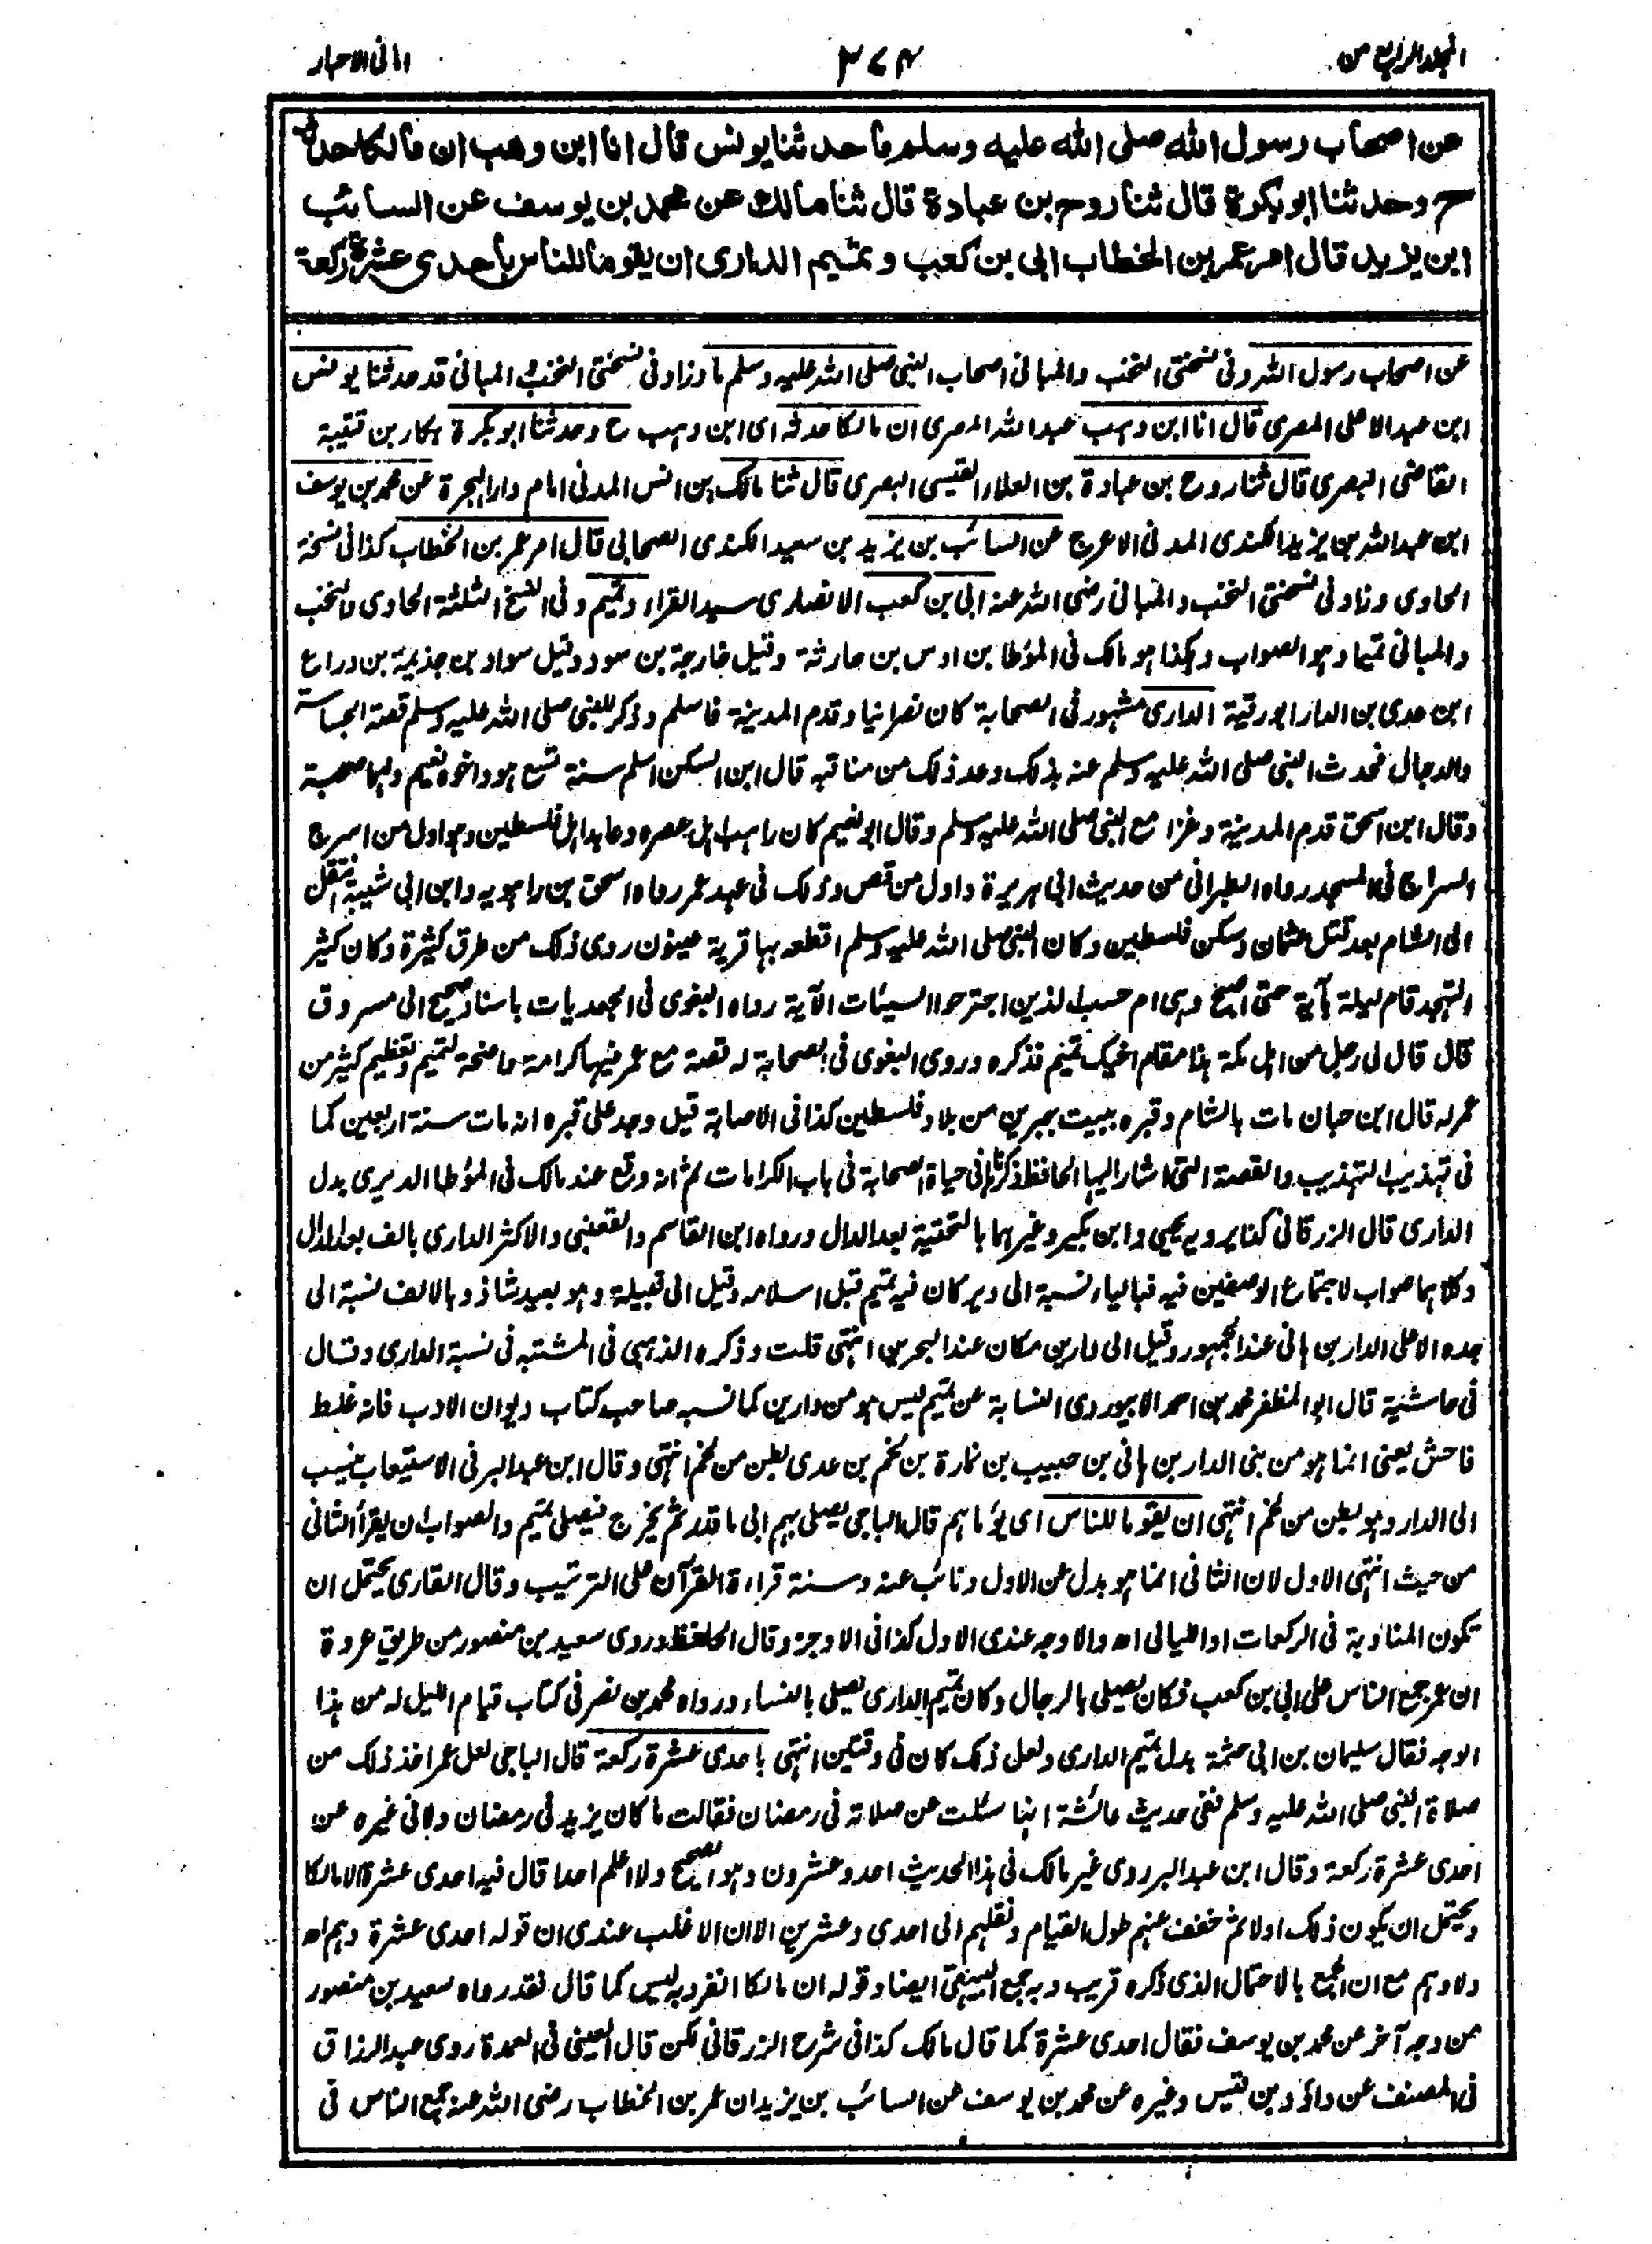 المجلد الرابع من
٣٧٤
امانی الاحبار
عن اصحاب رسول الله صلی الله علیه وسلم ما حدثنا یونس قال انا ابن وهب ان مالکا حدثه
ح وحدثنا ابو بکرة قال ثنا روح بن عبادة قال ثنا مالک عن محمد بن یوسف عن السائب
ابن یزید قال امر عمر بن الخطاب ابی بن کعب وتمیم الداری ان یقوما للناس باحدی عشرة رکعة
عن اصحاب رسول الله وفی نسختی النخب والمبانی اصحاب النبی صلی الله علیه وسلم ما وزاد فی نسختی النخب والمبانی قد حدثنا یونس
ابن عبد الاعلی المصری قال انا ابن وهب عبد الله المصری ان مالکا حدثه ای ابن وهب ح وحدثنا ابو بکرة بکار بن قتیبة
القاضی البصری قال ثنا روح بن عبادة بن العلاء القیسی البصری قال ثنا مالک بن انس المدنی امام دار الهجرة عن محمد بن یوسف
ابن عبد الله بن یزید الکندی المدنی الاعرج عن السائب بن یزید بن سعید الکندی الصحابی قال امر عمر بن الخطاب کذا فی نسخة
الحاوی وزاد فی نسختی النخب والمبانی رضی الله عنه ابی بن کعب الانصاری سید القراء وتمیم وفی النسخ الثلثة الحاوی والنخب
والمبانی تمیما وهو الصواب وهکذا هو مالک فی المؤطا بن اوس بن حارثة وقیل خارجة بن سود وقیل سواد بن جذیمة بن دراع
ابن عدی بن الدار ابو رقیة الداری مشهور فی الصحابة کان نصرانیا وقدم المدینة فاسلم وذکر للنبی صلی الله علیه وسلم قصة الجساسة
والدجال فحدث النبی صلی الله علیه وسلم عنه بذلک وعد ذلک من مناقبه قال ابن السکن اسلم سنة تسع هو واخوه نعیم ولهما صحبة
وقال ابن اسحق قدم المدینة وغزا مع النبی صلی الله علیه وسلم وقال ابو نعیم کان راهب اهل عصره وعابد اهل فلسطین وهو اول من اسرج
السراج فی المسجد رواه الطبرانی من حدیث ابی هریرة واول من قص وذلک فی عهد عمر رواه اسحق بن راهویه وابن ابی شیبة انتقل
الی الشام بعد قتل عثمان وسکن فلسطین وکان النبی صلی الله علیه وسلم اقطعه بها قریة عینون روی ذلک من طرق کثیرة وکان کثیر
التهجد قام لیلة بآیة حتی اصبح وهی ام حسب الذین اجترحوا السیئات الآیة رواه البغوی فی الجعدیات باسناد صحیح الی مسروق
قال قال لی رجل من اهل مکة هذا مقام اخیک تمیم فذکره وروی البغوی فی الصحابة له قصة مع عمر فیها کرامة واضحة لتمیم وتعظیم کثیر من
عمر له قال ابن حبان مات بالشام وقبره ببیت جبرین من بلاد فلسطین کذا فی الاصابة قیل وجد علی قبره انه مات سنة اربعین کما
فی تهذیب التهذیب والقصة التی اشار الیها الحافظ ذکرتها فی حیاة الصحابة فی باب الکرامات ثم انه وقع عند مالک فی المؤطا الدیری بدل
الداری قال الزرقانی کذا یرویه یحیی وابن بکیر وغیرهما بالتحتیة بعد الدال ورواه ابن القاسم والقعنبی والاکثر الداری بالف بعد الدال
وکلاهما صواب لاجتماع الوصفین فیه فبالیاء نسبة الی دیر کان فیه تمیم قبل اسلامه وقیل الی قبیلة وهو بعید شاذ وبالالف نسبة الی
جده الاعلی الدار بن هانی عند الجمهور وقیل الی دارین مکان عند البحرین انتهی قلت وذکره الذهبی فی المشتبه فی نسبة الداری وقال
فی حاشیة قال ابو المظفر محمد بن احمد الابیوردی النسابة عن تمیم لیس هو من دارین کما نسبه صاحب کتاب دیوان الادب فانه غلط
فاحش یعنی انما هو من بنی الدار بن هانی بن حبیب بن نمارة بن لخم بن عدی بطن من لخم انتهی وقال ابن عبد البر فی الاستیعاب ینسب
الی الدار وهو بطن من لخم انتهی ان یقوما للناس ای یؤماهم قال الباجی یصلی بهم ابی ما قدر ثم یخرج فیصلی تمیم والصواب ان یقرأ الثانی
من حیث انتهی الاول لان الثانی انما هو بدل عن الاول ونائب عنه وسنة قراءة القرآن علی الترتیب وقال القاری یحتمل ان
تکون المناوبة فی الرکعات او اللیالی اه والاوجه عندی الاول کذا فی الاوجز وقال الحافظ وروی سعید بن منصور من طریق عروة
ان عمر جمع الناس علی ابی بن کعب فکان یصلی بالرجال وکان تمیم الداری یصلی بالنساء ورواه محمد بن نصر فی کتاب قیام اللیل له من هذا
الوجه فقال سلیمان بن ابی حثمة بدل تمیم الداری ولعل ذلک کان فی وقتین انتهی باحدی عشرة رکعة قال الباجی لعل عمر اخذ ذلک من
صلاة النبی صلی الله علیه وسلم ففی حدیث عائشة انها سئلت عن صلاته فی رمضان فقالت ما کان یزید فی رمضان ولا فی غیره عن
احدی عشرة رکعة وقال ابن عبد البر روی غیر مالک فی هذا الحدیث احد وعشرون وهو الصحیح ولا اعلم احدا قال فیه احدی عشرة الا مالکا
ویحتمل ان یکون ذلک اولا ثم خفف عنهم طول القیام ونقلهم الی احدی وعشرین الا ان الاغلب عندی ان قوله احدی عشرة وهم اه
ولا وهم مع ان الجمع بالاحتمال الذی ذکره قریب وبه جمع البیهقی ایضا وقوله ان مالکا انفرد به لیس کما قال فقد رواه سعید بن منصور
من وجه آخر عن محمد بن یوسف فقال احدی عشرة کما قال مالک کذا فی شرح الزرقانی لکن قال العینی فی العمدة روی عبد الرزاق
فی المصنف عن داؤد بن قیس وغیره عن محمد بن یوسف عن السائب بن یزید ان عمر بن الخطاب رضی الله عنه جمع الناس فی